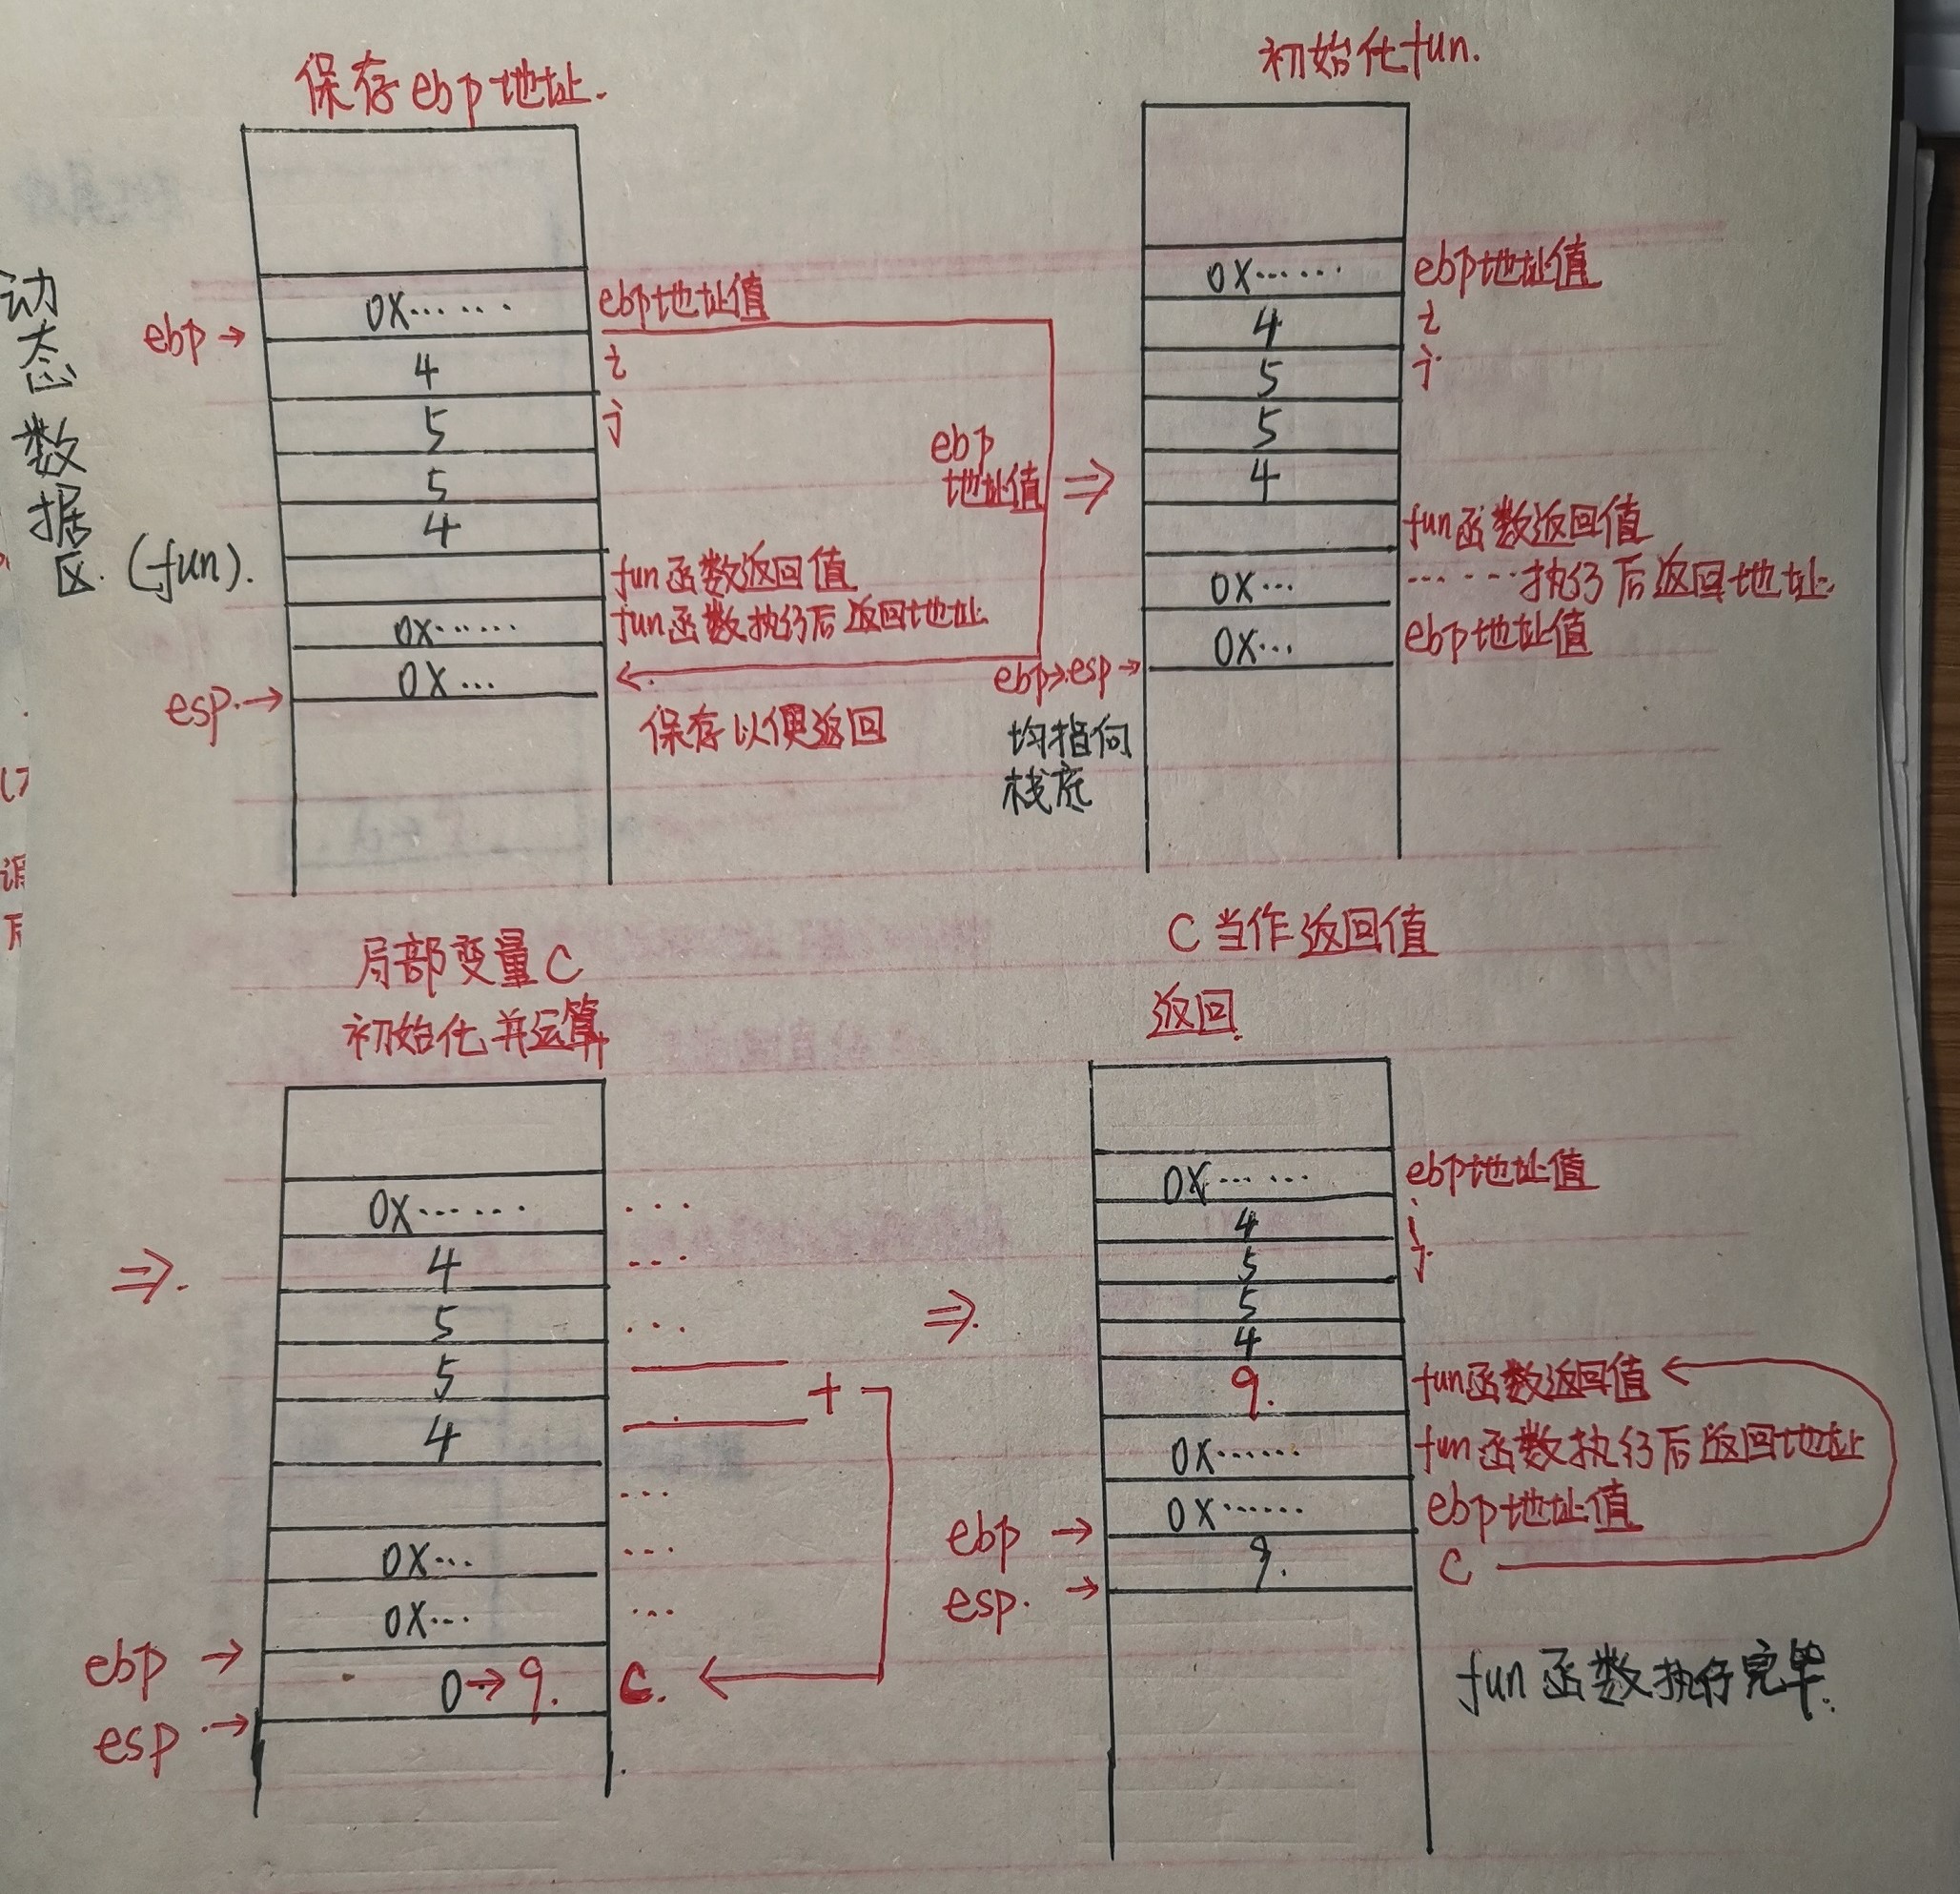 保存ebp地址.
ebp→
0X······
ebp地址值
4
i
5
j
5
4
fun函数返回值
0X······
fun函数执行后返回地址
esp.→
0X···
保存以便返回
ebp
地址值
动态数据区.
(fun).
初始化fun.
0X······
ebp地址值
4
i
5
j
5
4
fun函数返回值
0X···
······执行后返回地址.
ebp.esp→
0X···
ebp地址值
均指向
栈底
局部变量C
初始化并运算
0X······
···
4
···
5
···
5
+
4
···
0X···
···
0X···
···
ebp→
0→9.
C.
esp→
C当作返回值
返回.
0X······
ebp地址值
4
i
5
j
5
4
9.
fun函数返回值
0X······
fun函数执行后返回地址
0X······
ebp地址值
ebp→
9.
C
esp.→
fun函数执行完毕.